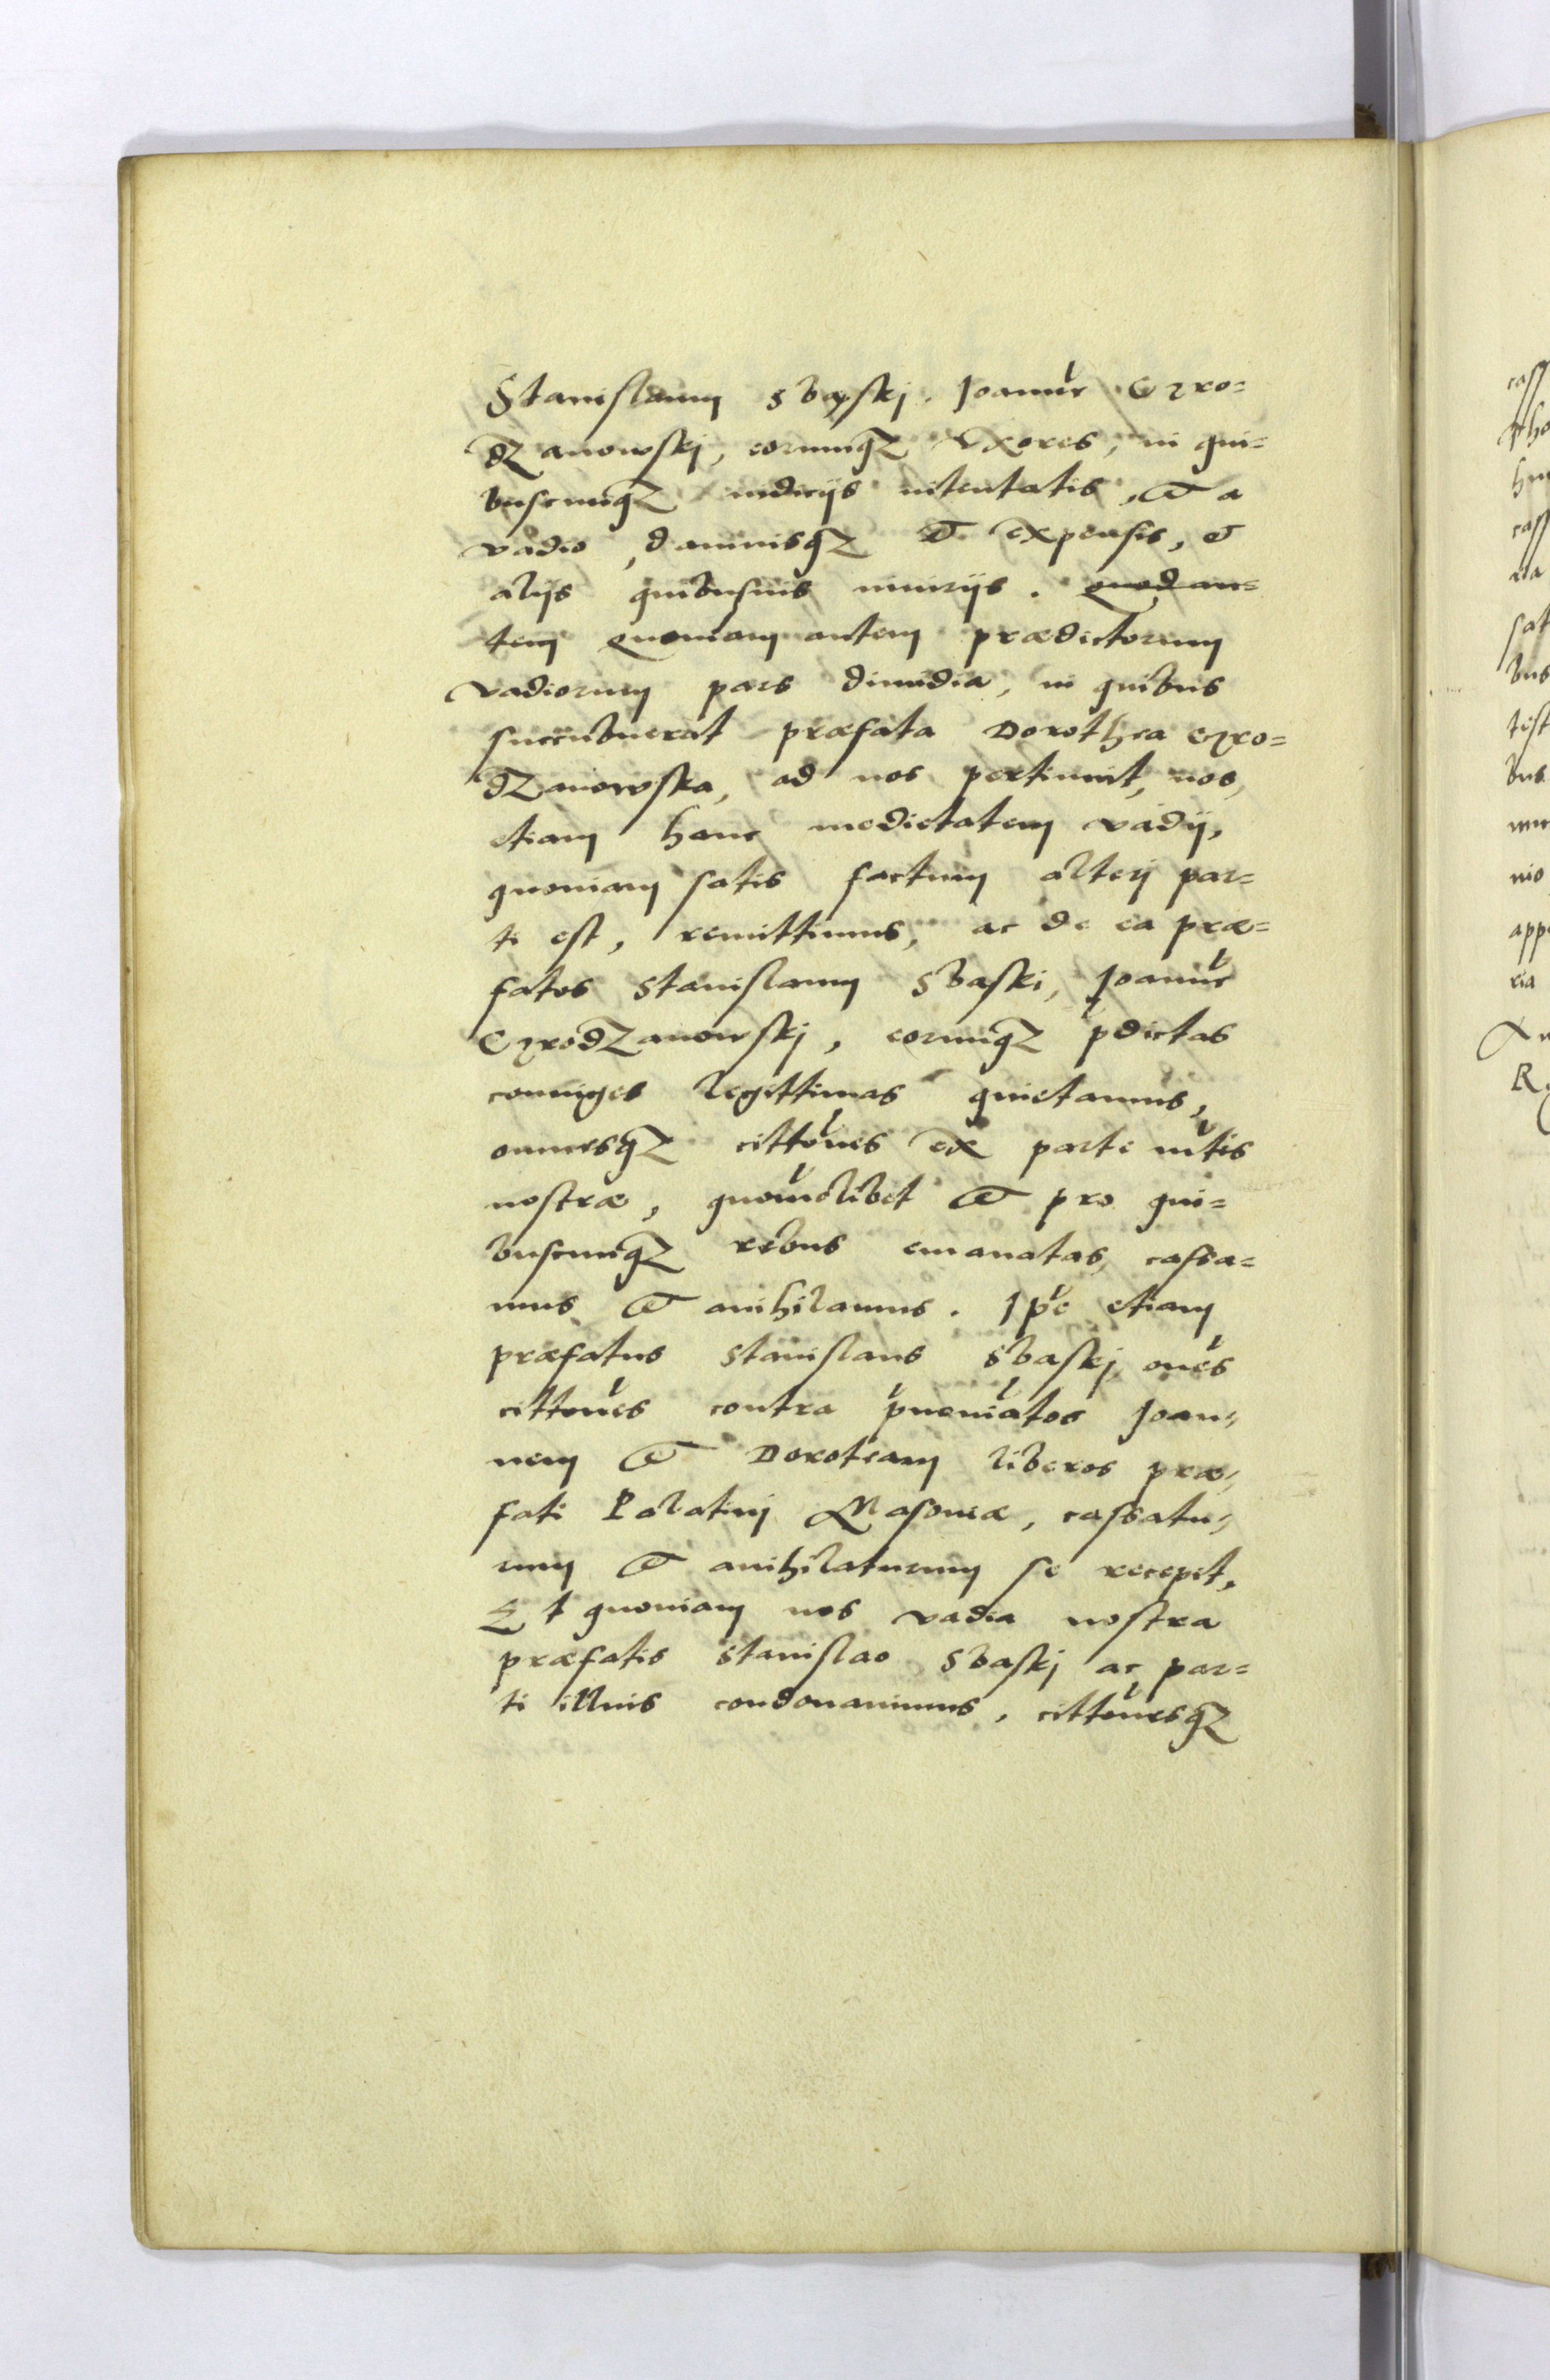 Stanislaum Sbaskj. Joannē Gzro=
dzanowskj, eorumqz Uxores, in qui=
buscunqz iudicijs intentatis, et a
vadio, damnisqz et expensis, et
alijs quibusuis iniurijs. Quod au=
tem Quoniam autem praedictorum
vadiorum pars dimidia, in quibus
succubuerat praefata Dorothea Gzro=
dzanowska, ad nos pertinuit, nos,
etiam hanc medietatem vadij,
quoniam satis factum alterj par=
ti est, remittimus, ac de ea prae=
fatos Stanislaum Sbaski, Joannē
Gzrodzanowskj, eorumqz pdictas
coniuges legittimas quietamus,
omnesqz cittones ex parte intis
nostrae, quomolibet et pro qui=
buscunqz rebus emanatas, cassa=
mus et anihilamus. Ipe etiam
praefatus Stanislaus Sbaskj ones
cittones contra pnominatos Joan=
nem et Doroteam liberos prae=
fati Palatinj Masoviae, cassatu=
rum et anihilaturum se recepit,
Et quoniam nos vadia nostra
praefatis Stanislao Sbaskj ac par=
ti illius condonauimus, cittonesqz